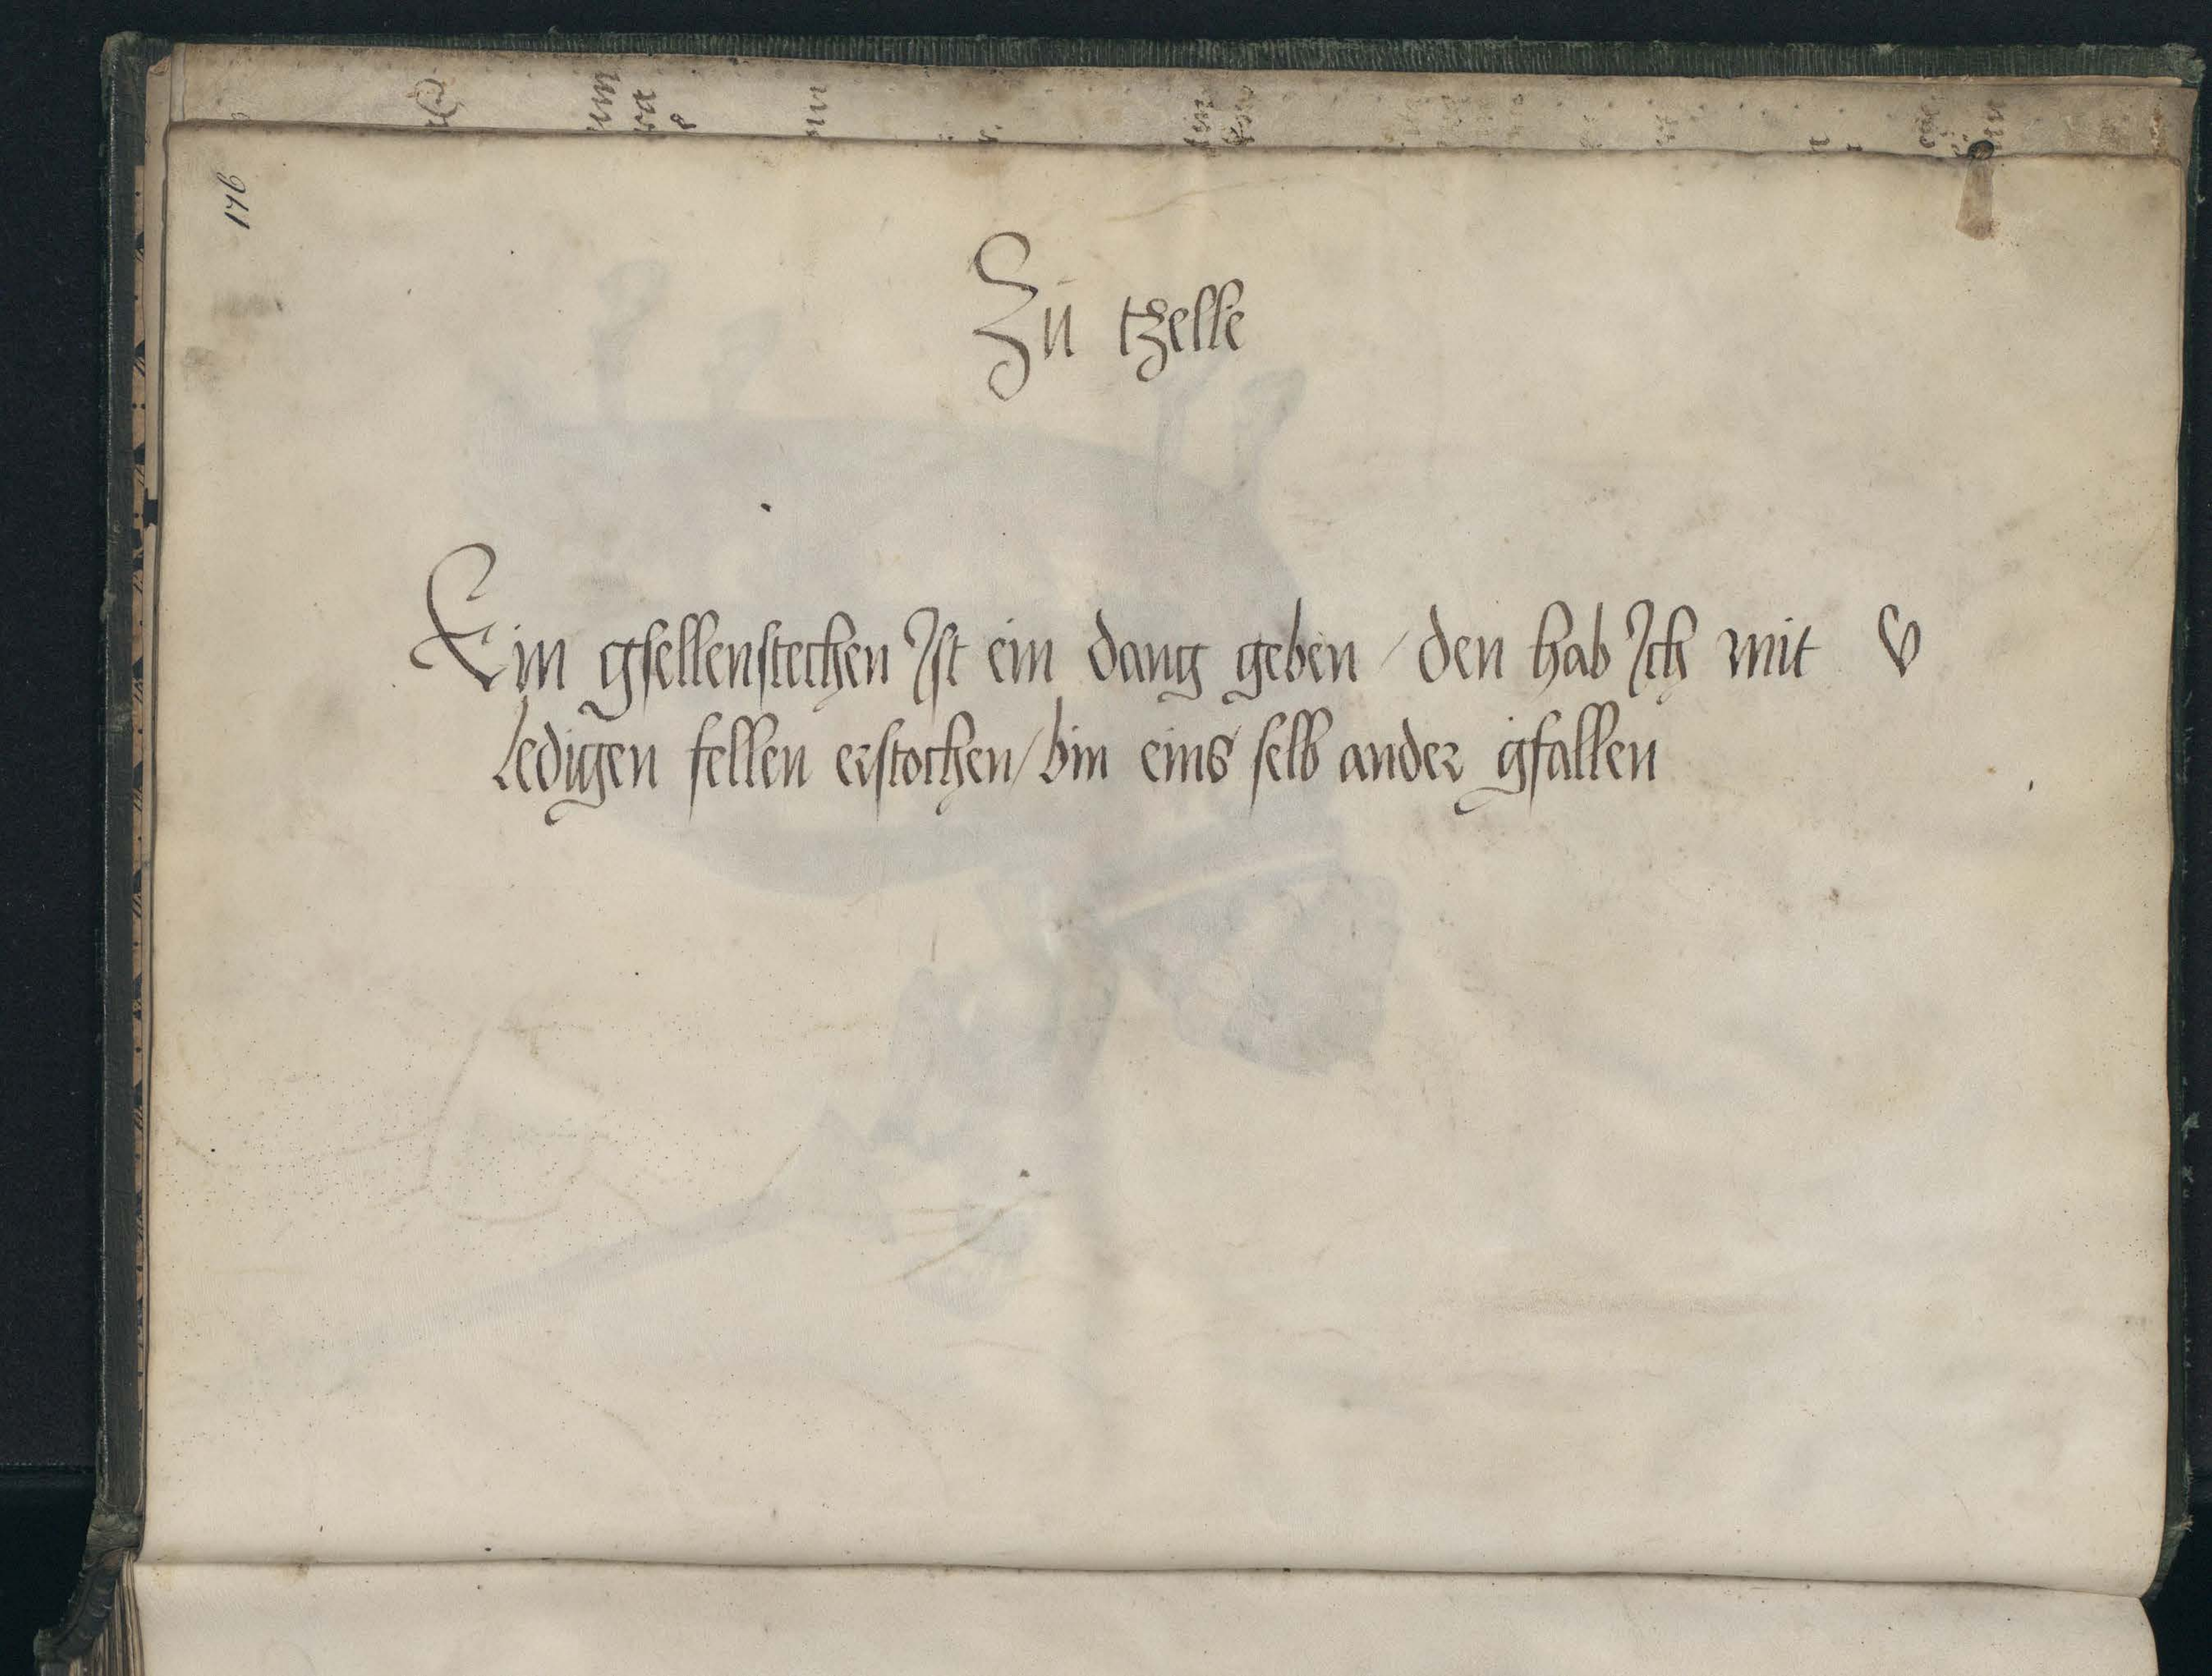 176
Zu tzelle
Ein gsellenstechen Ist ein dang geben / den hab Ich mit v
ledigen fellen erstochen / bin eins selb ander gfallen